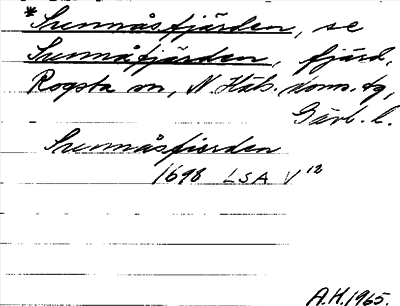 *Svennåsfjärden, se
Svennåfjärden, fjärd,
Rogsta sn, N. Häls. doms. tg,
Gävl. l.
Svennåsfiärden
1698 LSA V 12
A.H. 1965.